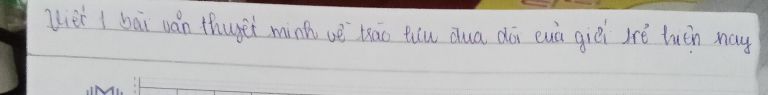 Viết 1 bài văn thuyết minh về trào lưu đua đòi của giới trẻ hiện nay